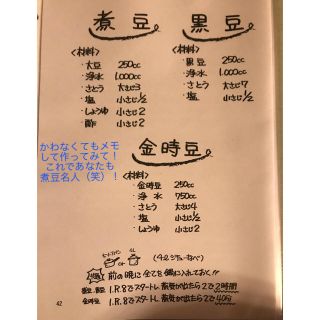 煮豆。
<材料>
・大豆 250cc
・浄水 1,000cc
・さとう 大さじ3
・塩 小さじ1/2
・しょうゆ 小さじ2
・酢 小さじ2
黒豆。
<材料>
・黒豆 250cc
・浄水 1,000cc
・さとう 大さじ7
・塩 小さじ1/2
かわなくてもメモ
して作ってみて！
これであなたも
煮豆名人（笑）！
金時豆。
<材料>
・金時豆 250cc
・浄水 750cc
・さとう 大さじ4
・塩 小さじ1/2
・しょうゆ 小さじ2
or 4L
前の晩に全てを鍋に入れておく!!
煮豆、黒豆 I.R.8でスタートし 蒸気が出たら2で2時間
金時豆 I.R.8でスタートし 蒸気が出たら2で40分
42